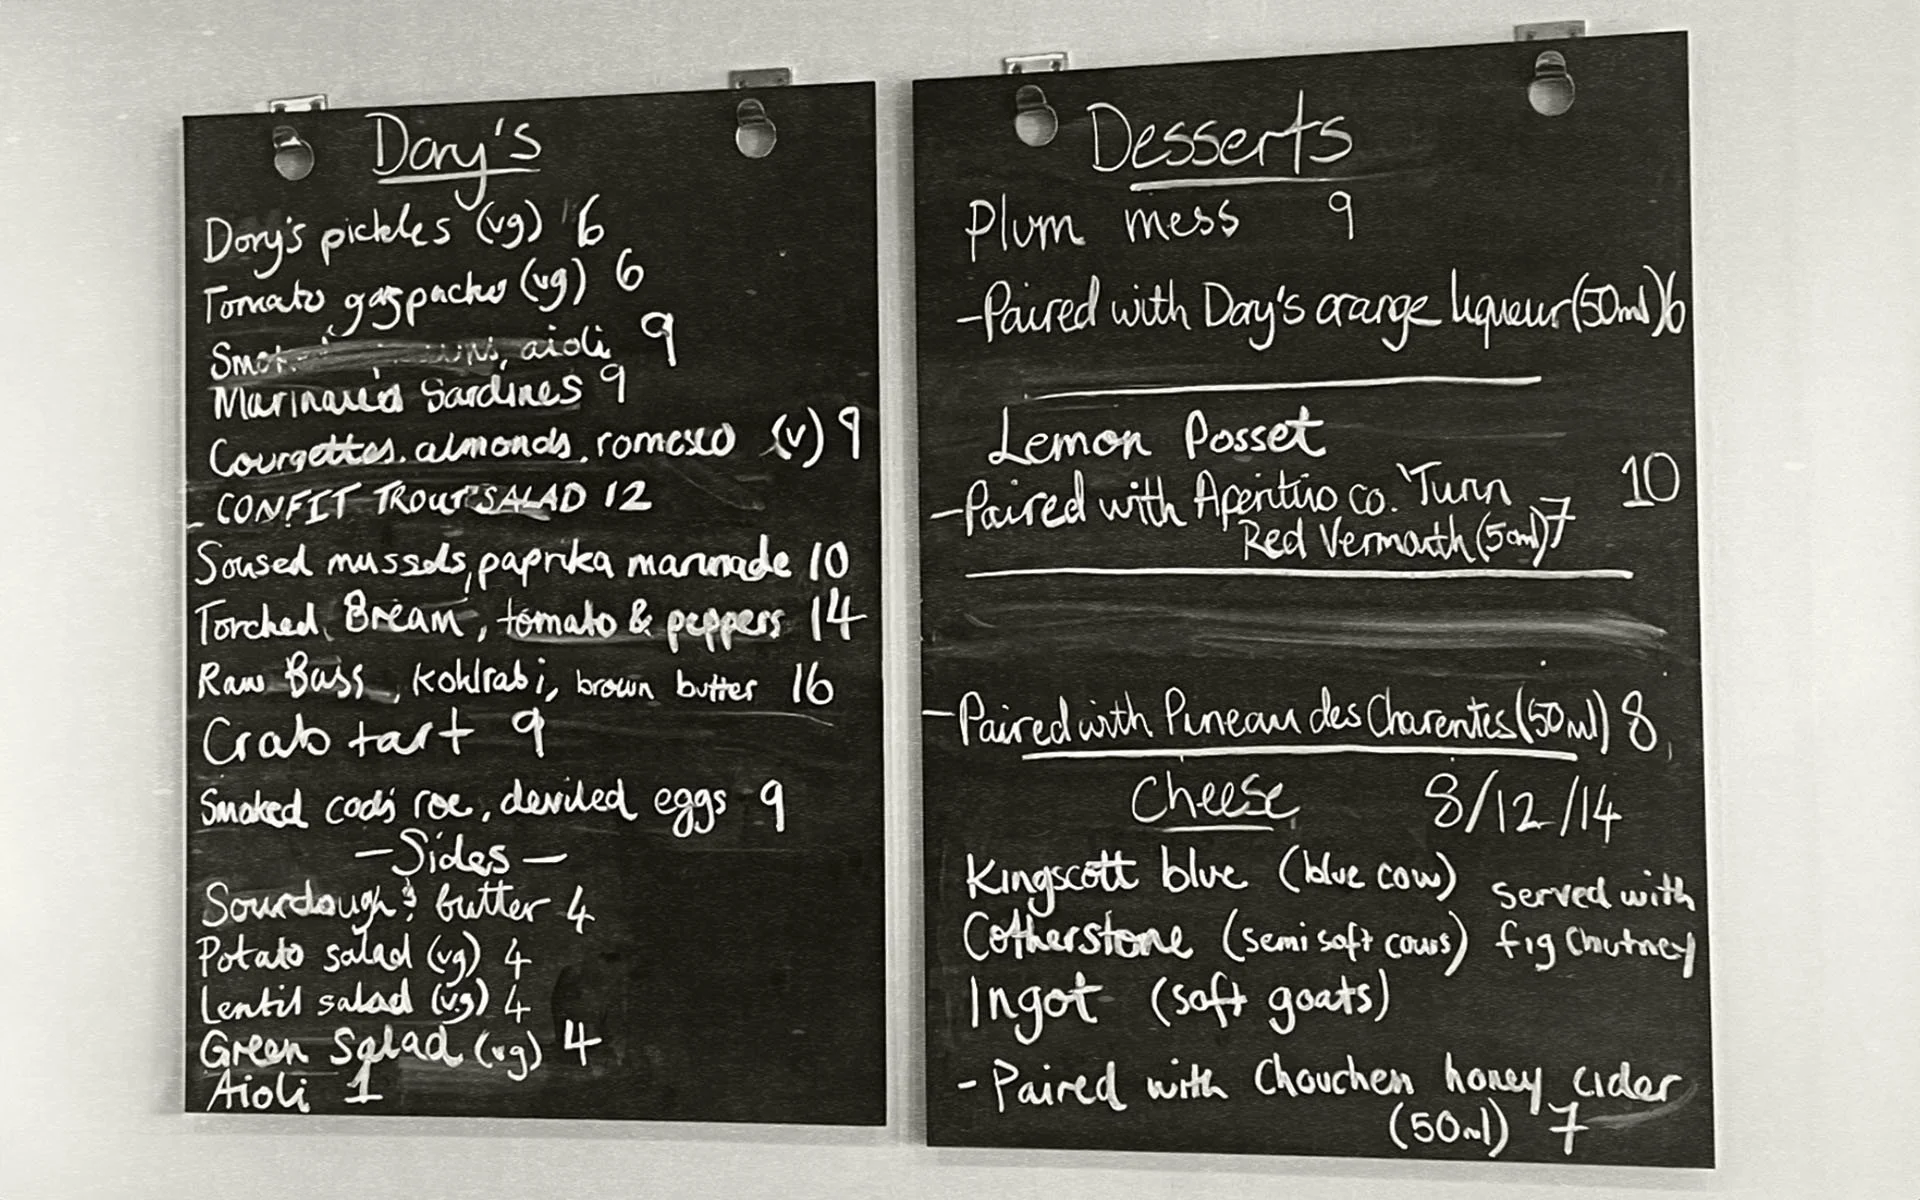 Dory's
Dory's pickles (vg) 6
Tomato gazpacho (vg) 6
aioli 9
Marinated Sardines 9
Courgettes, almonds, romesco (v) 9
CONFIT TROUT SALAD 12
Soused mussels, paprika marinade 10
Torched Bream, tomato & peppers 14
Raw Bass, kohlrabi, brown butter 16
Crab tart 9
Smoked cod's roe, deviled eggs 9
- Sides -
Sourdough & butter 4
Potato salad (vg) 4
Lentil salad (vg) 4
Green Salad (vg) 4
Aioli 1
Desserts
Plum mess 9
- Paired with Dory's orange liqueur (50ml) 6
Lemon Posset
10
- Paired with Aperitivo co. 'Turin
Red Vermouth (50ml) 7
- Paired with Pineau des Charentes (50ml) 8
Cheese 8/12/14
Kingscott blue (blue cow) served with
Cotherstone (semi soft cows) fig chutney
Ingot (soft goats)
- Paired with Chouchen honey cider
(50ml) 7